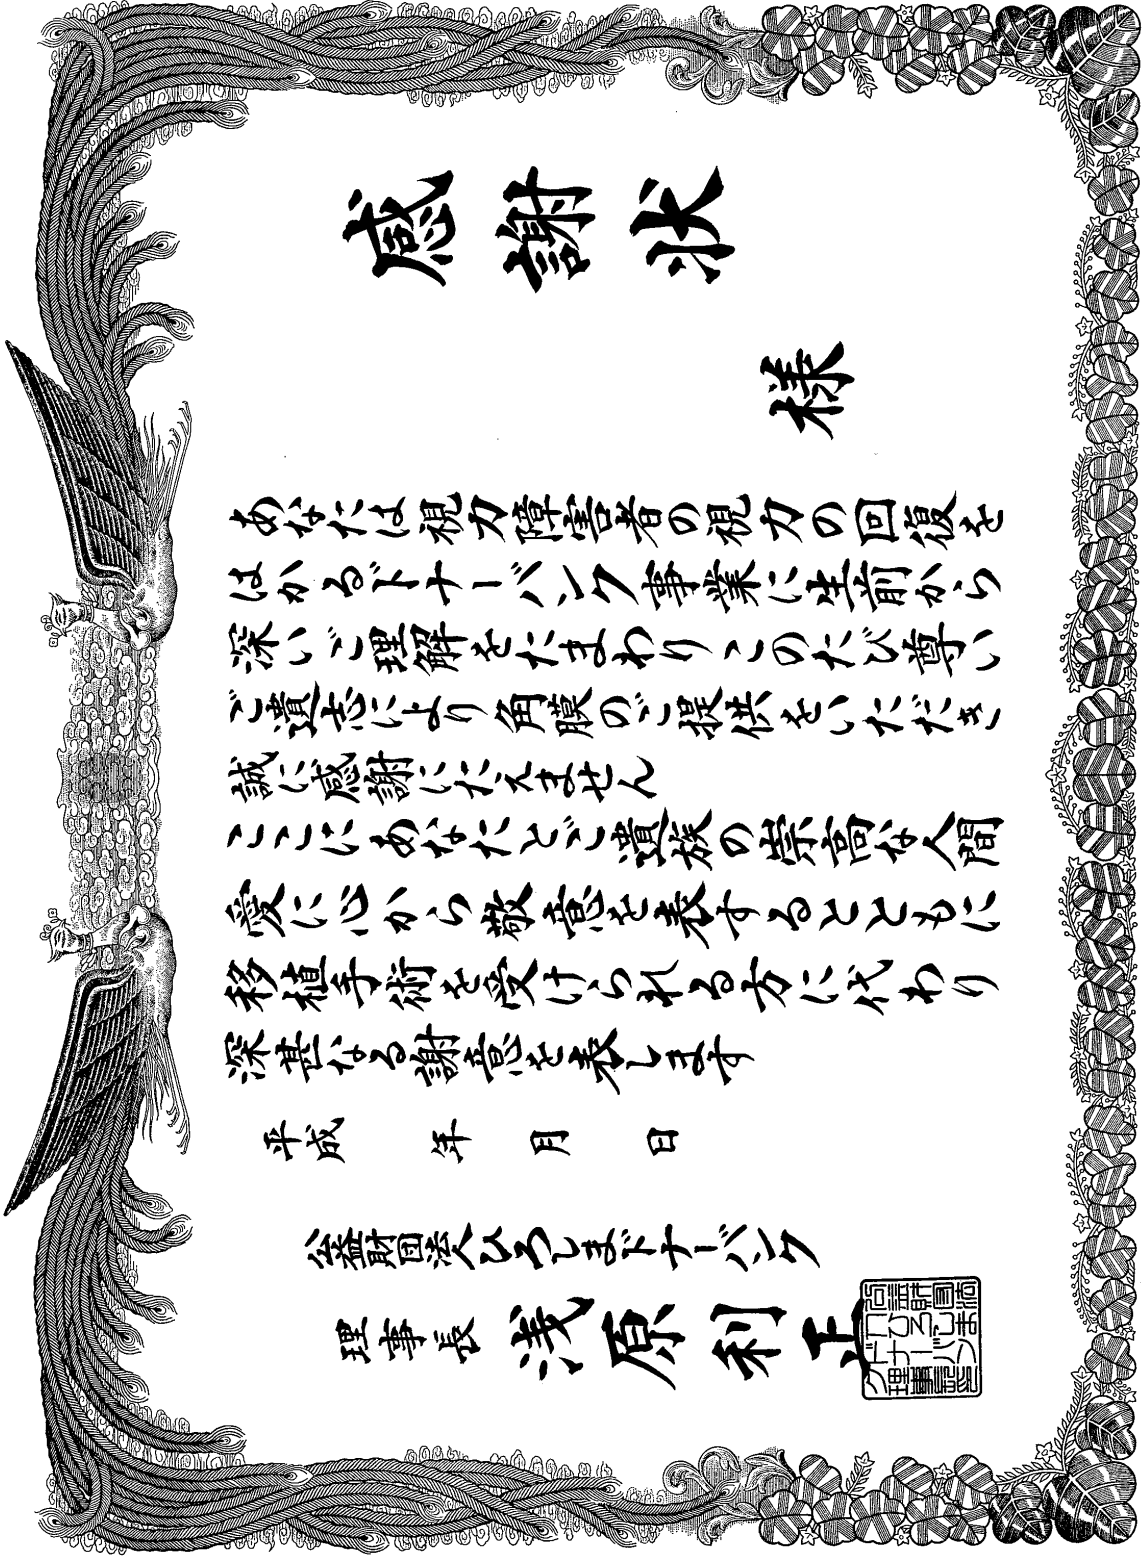 感謝状
様
あなたは視力障害者の視力の回復を
はかるドナーバンク事業に生前から
深いご理解をたまわりこのたび尊い
ご遺志により角膜のご提供をいただき
誠に感謝にたえません
ここにあなたとご遺族の崇高な人間
愛に心から敬意を表するとともに
移植手術を受けられる方に代わり
深甚なる謝意を表します
平成 年 月 日
公益財団法人ひろしまドナーバンク
理事長 浅原利正